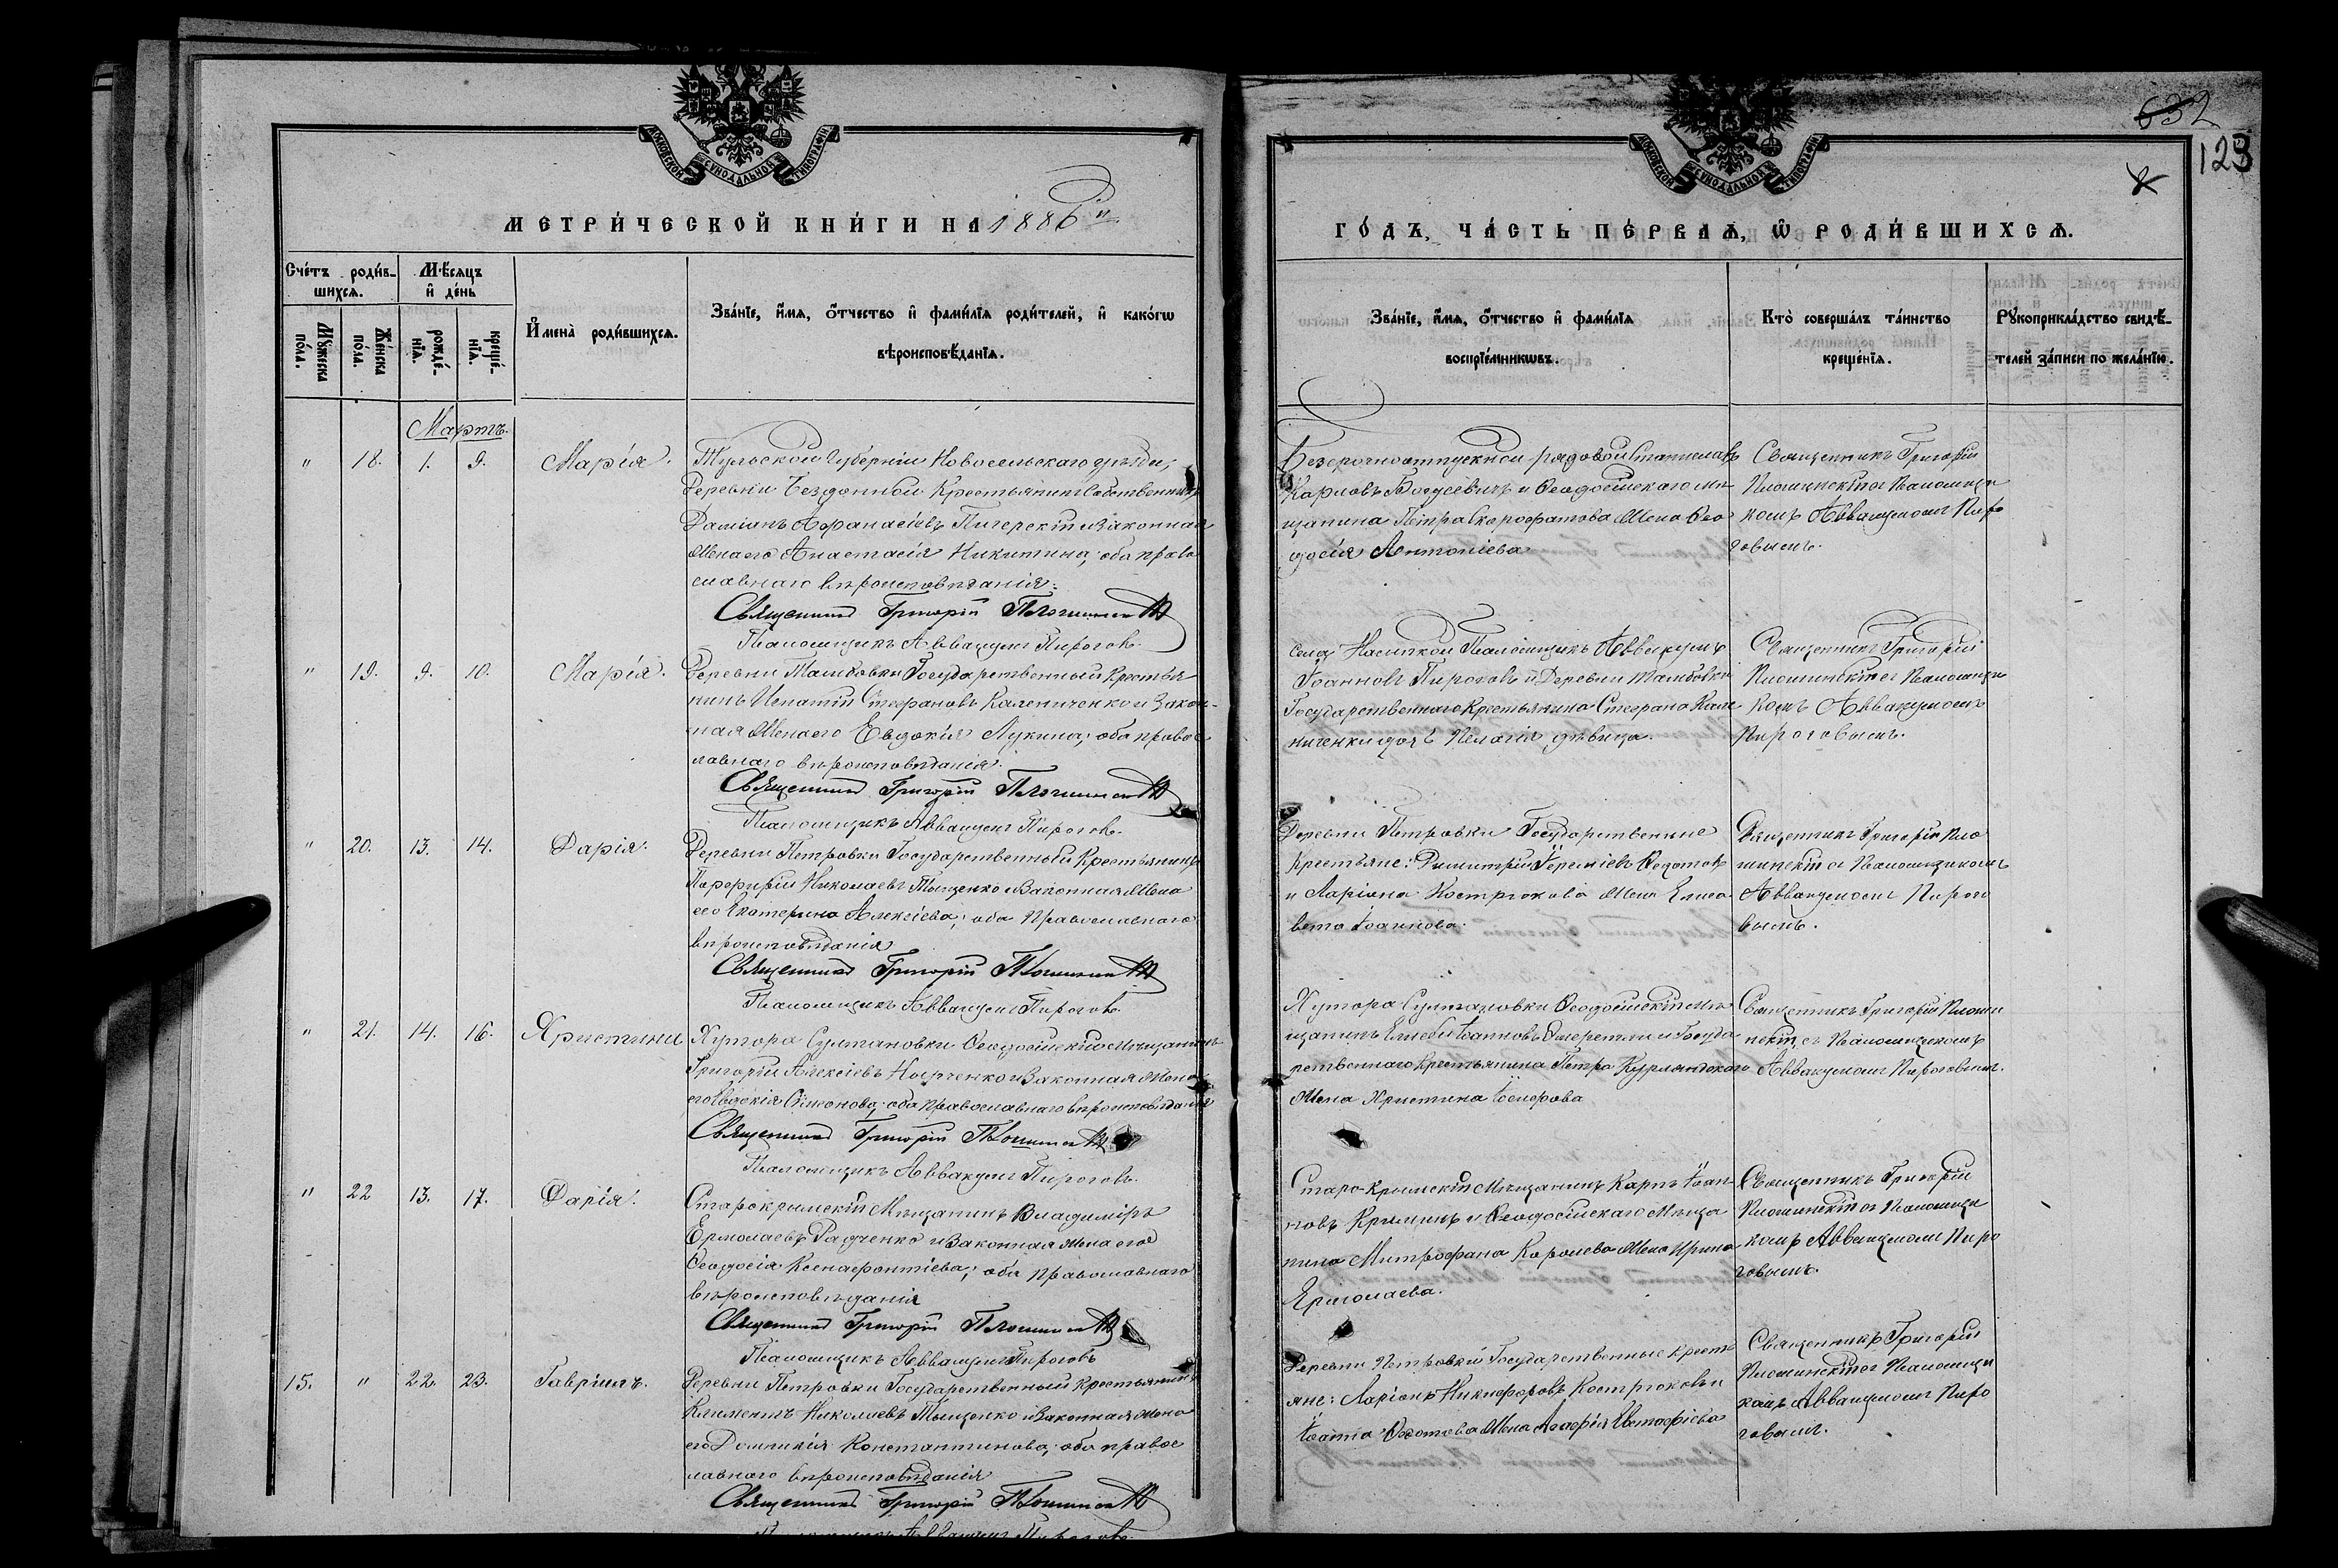 МОСКОВСКОЙ СѴНОДАЛЬНОЙ ТИПОГРАФІИ
МЕТРИ́ЧЕСКОЙ КНИ́ГИ НА 1886й
Сче́тъ роди́в-
шихсѧ.
Мѣ́сяцъ
и҆ де́нь
Мꙋ́жеска
по́ла.
Же́нска
по́ла.
рожде́-
нїѧ.
креще́-
нїѧ.
И҆мена̀ роди́вшихсѧ.
Зва́нїе, и҆́мѧ, ѻ҆́тчество и҆ фами́лїѧ роди́телей, и҆ како́гѡ
вѣроисповѣ́данїѧ.
Мартъ.
" 18. 1. 9. Марія.
Тульской Губерніи Новосельскаго уѣзда,
Деревни Бездонной Крестьянинъ Собственникъ
Даміанъ Аѳанасіевъ Пичерскій и Законная
Жена его Анастасія Никитина; оба право
славнаго вѣроисповѣданія.
Священникъ Григорій
Псаломщикъ Аввакумъ Пироговъ.
" 19. 9. 10. Марія.
Деревни Тамбовки Государственный Крестья
нинъ Игнатій Стефановъ Калениченко и Закон-
ная Жена его Евдокія Лукина; оба правос
лавнаго вѣроисповѣданія.
Священникъ Григорій
Псаломщикъ Аввакумъ Пироговъ.
" 20. 13. 14. Дарія.
Деревни Петровки Государственный Крестьянинъ
Порфирій Николаевъ Тыщенко и Законная Жена
его Екатерина Алексіева; оба Православнаго
вѣроисповѣданія
Священникъ Григорій
Псаломщикъ Аввакумъ Пироговъ.
" 21. 14. 16. Христина
Хутора Султановки Ѳеодосійскій Мѣщанинъ
Григорій Алексіевъ и Законная Жена
его Евдокія Симонова; оба православнаго вѣроисповѣданія
Священникъ Григорій
Псаломщикъ Аввакумъ Пироговъ.
" 22 13. 17. Дарія.
Старокрымскій Мѣщанинъ Владиміръ
Ермолаевъ Радченко и Законная Жена его
Ѳеодосія Ксенофонтіева; оба православнаго
вѣроисповѣданія
Священникъ Григорій
Псаломщикъ Аввакумъ Пироговъ
15. " 22. 23. Гавріилъ.
Деревни Петровки Государственный Крестьянинъ
Климентъ Николаевъ Тыщенко и Законная Жена
его Домникія Константинова; оба правос
лавнаго вѣроисповѣданія
Священникъ Григорій
Псаломщикъ Аввакумъ Пироговъ.
632
123
МОСКОВСКОЙ СѴНОДАЛЬНОЙ ТИПОГРАФІИ
ГО́ДЪ, ЧА́СТЬ ПЕ́РВАѦ, Ѡ҆ РОДИ́ВШИХСѦ.
Зва́нїе, и҆́мѧ, ѻ҆́тчество и҆ фами́лїѧ
воспрїе́мникѡвъ.
Кто̀ соверша́лъ та́инство
креще́нїѧ.
Рꙋкоприкла́дство свидѣ́-
телей за́писи по жела́нїю.
Безсрочноотпускной рядовой Станиславъ
Карловъ и Ѳеодосійскаго мѣ
щанина Петра Жена Ѳео
досія Антоніева
Священникъ Григорій
Плошинскій съ Псаломщи
комъ Аввакумомъ Пиро
говымъ.
села Насыпкой Псаломщикъ Аввакумъ
Іоанновъ Пироговъ и Деревни Тамбовки
Государственнаго Крестьянина Стефана Кале
ниченки дочь Пелагія дѣвица.
Священникъ Григорій
Плошинскій съ Псаломщи
комъ Аввакумомъ
Пироговымъ.
Деревни Петровки Государственные
Крестьяне: Димитрій Іереміевъ Ѳедотовъ
и Ларіона Кострюкова Жена Елиса
вета Іоаннова.
Священникъ Григорій Пло
шинскій съ Псаломщикомъ
Аввакумомъ Пирого
вымъ.
Хутора Султановки Ѳеодосійскій мѣ
щанинъ Іоанновъ и Госуда
рственнаго Крестьянина Петра Курляндскаго
Жена Христина Іосифова
Священникъ Григорій Плоши
нскій съ Псаломщикомъ
Аввакумомъ Пироговымъ.
Старо-Крымскій Мѣщанинъ Карпъ Іоан
новъ и Ѳеодосійскаго Мѣща
нина Митрофана Королева Жена Ирина
Ермолаева.
Священникъ Григорій
Плошинскій съ Псаломщи
комъ Аввакумомъ Пиро
говымъ.
Деревни Петровки Государственные Кресть
яне: Ларіонъ Никифоровъ Кострюковъ и
Ѳедотова Жена Агафія Евстафіева
Священникъ Григорій
Плошинскій съ Псаломщи
комъ Аввакумомъ Пиро
говымъ.